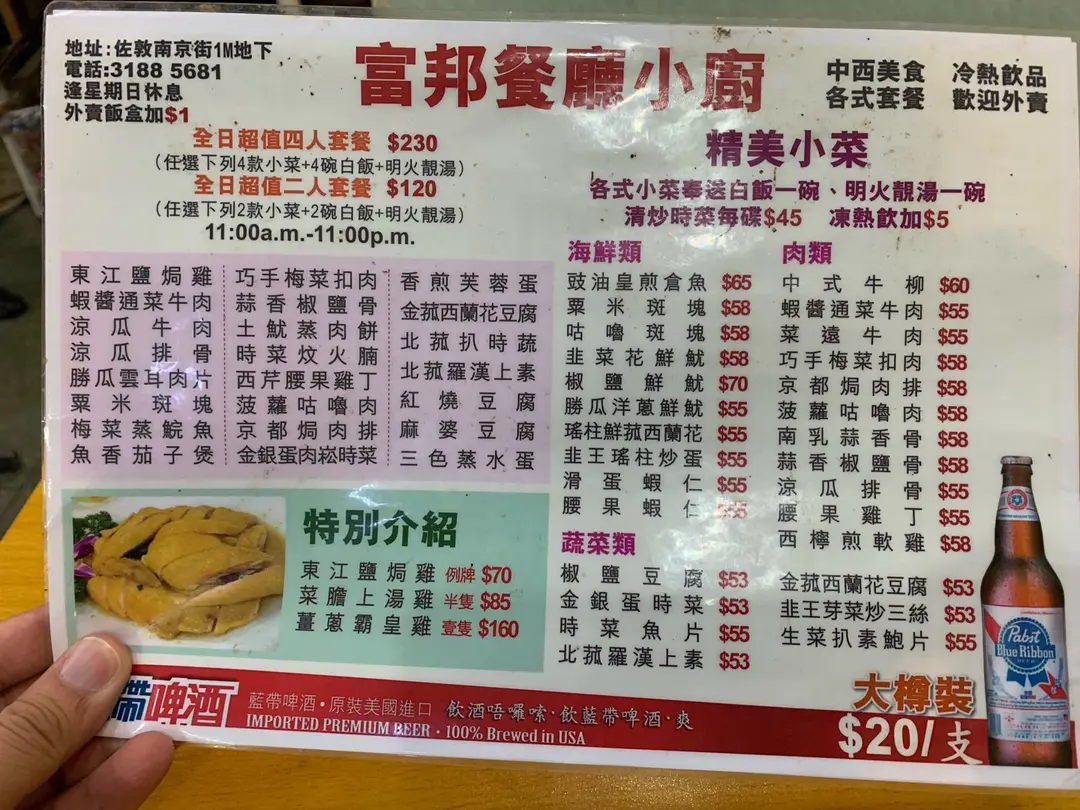 地址:佐敦南京街1M地下
電話:3188 5681
逢星期日休息
外賣飯盒加$1
富邦餐廳小廚
中西美食 冷熱飲品
各式套餐 歡迎外賣
全日超值四人套餐 $230
(任選下列4款小菜+4碗白飯+明火靚湯)
全日超值二人套餐 $120
(任選下列2款小菜+2碗白飯+明火靚湯)
11:00a.m.-11:00p.m.
精美小菜
各式小菜奉送白飯一碗、明火靚湯一碗
清炒時菜每碟$45 凍熱飲加$5
東江鹽焗雞
蝦醬通菜牛肉
涼瓜牛肉
涼瓜排骨
勝瓜雲耳肉片
粟米斑塊
梅菜蒸鯇魚
魚香茄子煲
巧手梅菜扣肉
蒜香椒鹽骨
土魷蒸肉餅
時菜炆火腩
西芹腰果雞丁
菠蘿咕嚕肉
京都焗肉排
金銀蛋肉崧時菜
香煎芙蓉蛋
金菰西蘭花豆腐
北菰扒時蔬
北菰羅漢上素
紅燒豆腐
麻婆豆腐
三色蒸水蛋
特別介紹
東江鹽焗雞 例牌 $70
菜膽上湯雞 半隻 $85
薑蔥霸皇雞 壹隻 $160
海鮮類
豉油皇煎倉魚 $65
粟米斑塊 $58
咕嚕斑塊 $58
韭菜花鮮魷 $58
椒鹽鮮魷 $70
勝瓜洋蔥鮮魷 $55
瑤柱鮮菰西蘭花 $55
韭王瑤柱炒蛋 $55
滑蛋蝦仁 $55
腰果蝦仁
肉類
中式牛柳 $60
蝦醬通菜牛肉 $55
菜遠牛肉 $55
巧手梅菜扣肉 $58
京都焗肉排 $58
菠蘿咕嚕肉 $58
南乳蒜香骨 $58
蒜香椒鹽骨 $58
涼瓜排骨 $55
腰果雞丁 $55
西檸煎軟雞 $58
蔬菜類
椒鹽豆腐 $53
金銀蛋時菜 $53
時菜魚片 $55
北菰羅漢上素 $53
金菰西蘭花豆腐 $53
韭王芽菜炒三絲 $53
生菜扒素鮑片 $55
帶啤酒
藍帶啤酒·原裝美國進口
IMPORTED PREMIUM BEER · 100% Brewed in USA
飲酒唔囉嗦·飲藍帶啤酒·爽
大樽裝
$20/支
Pabst
Blue Ribbon
BEER